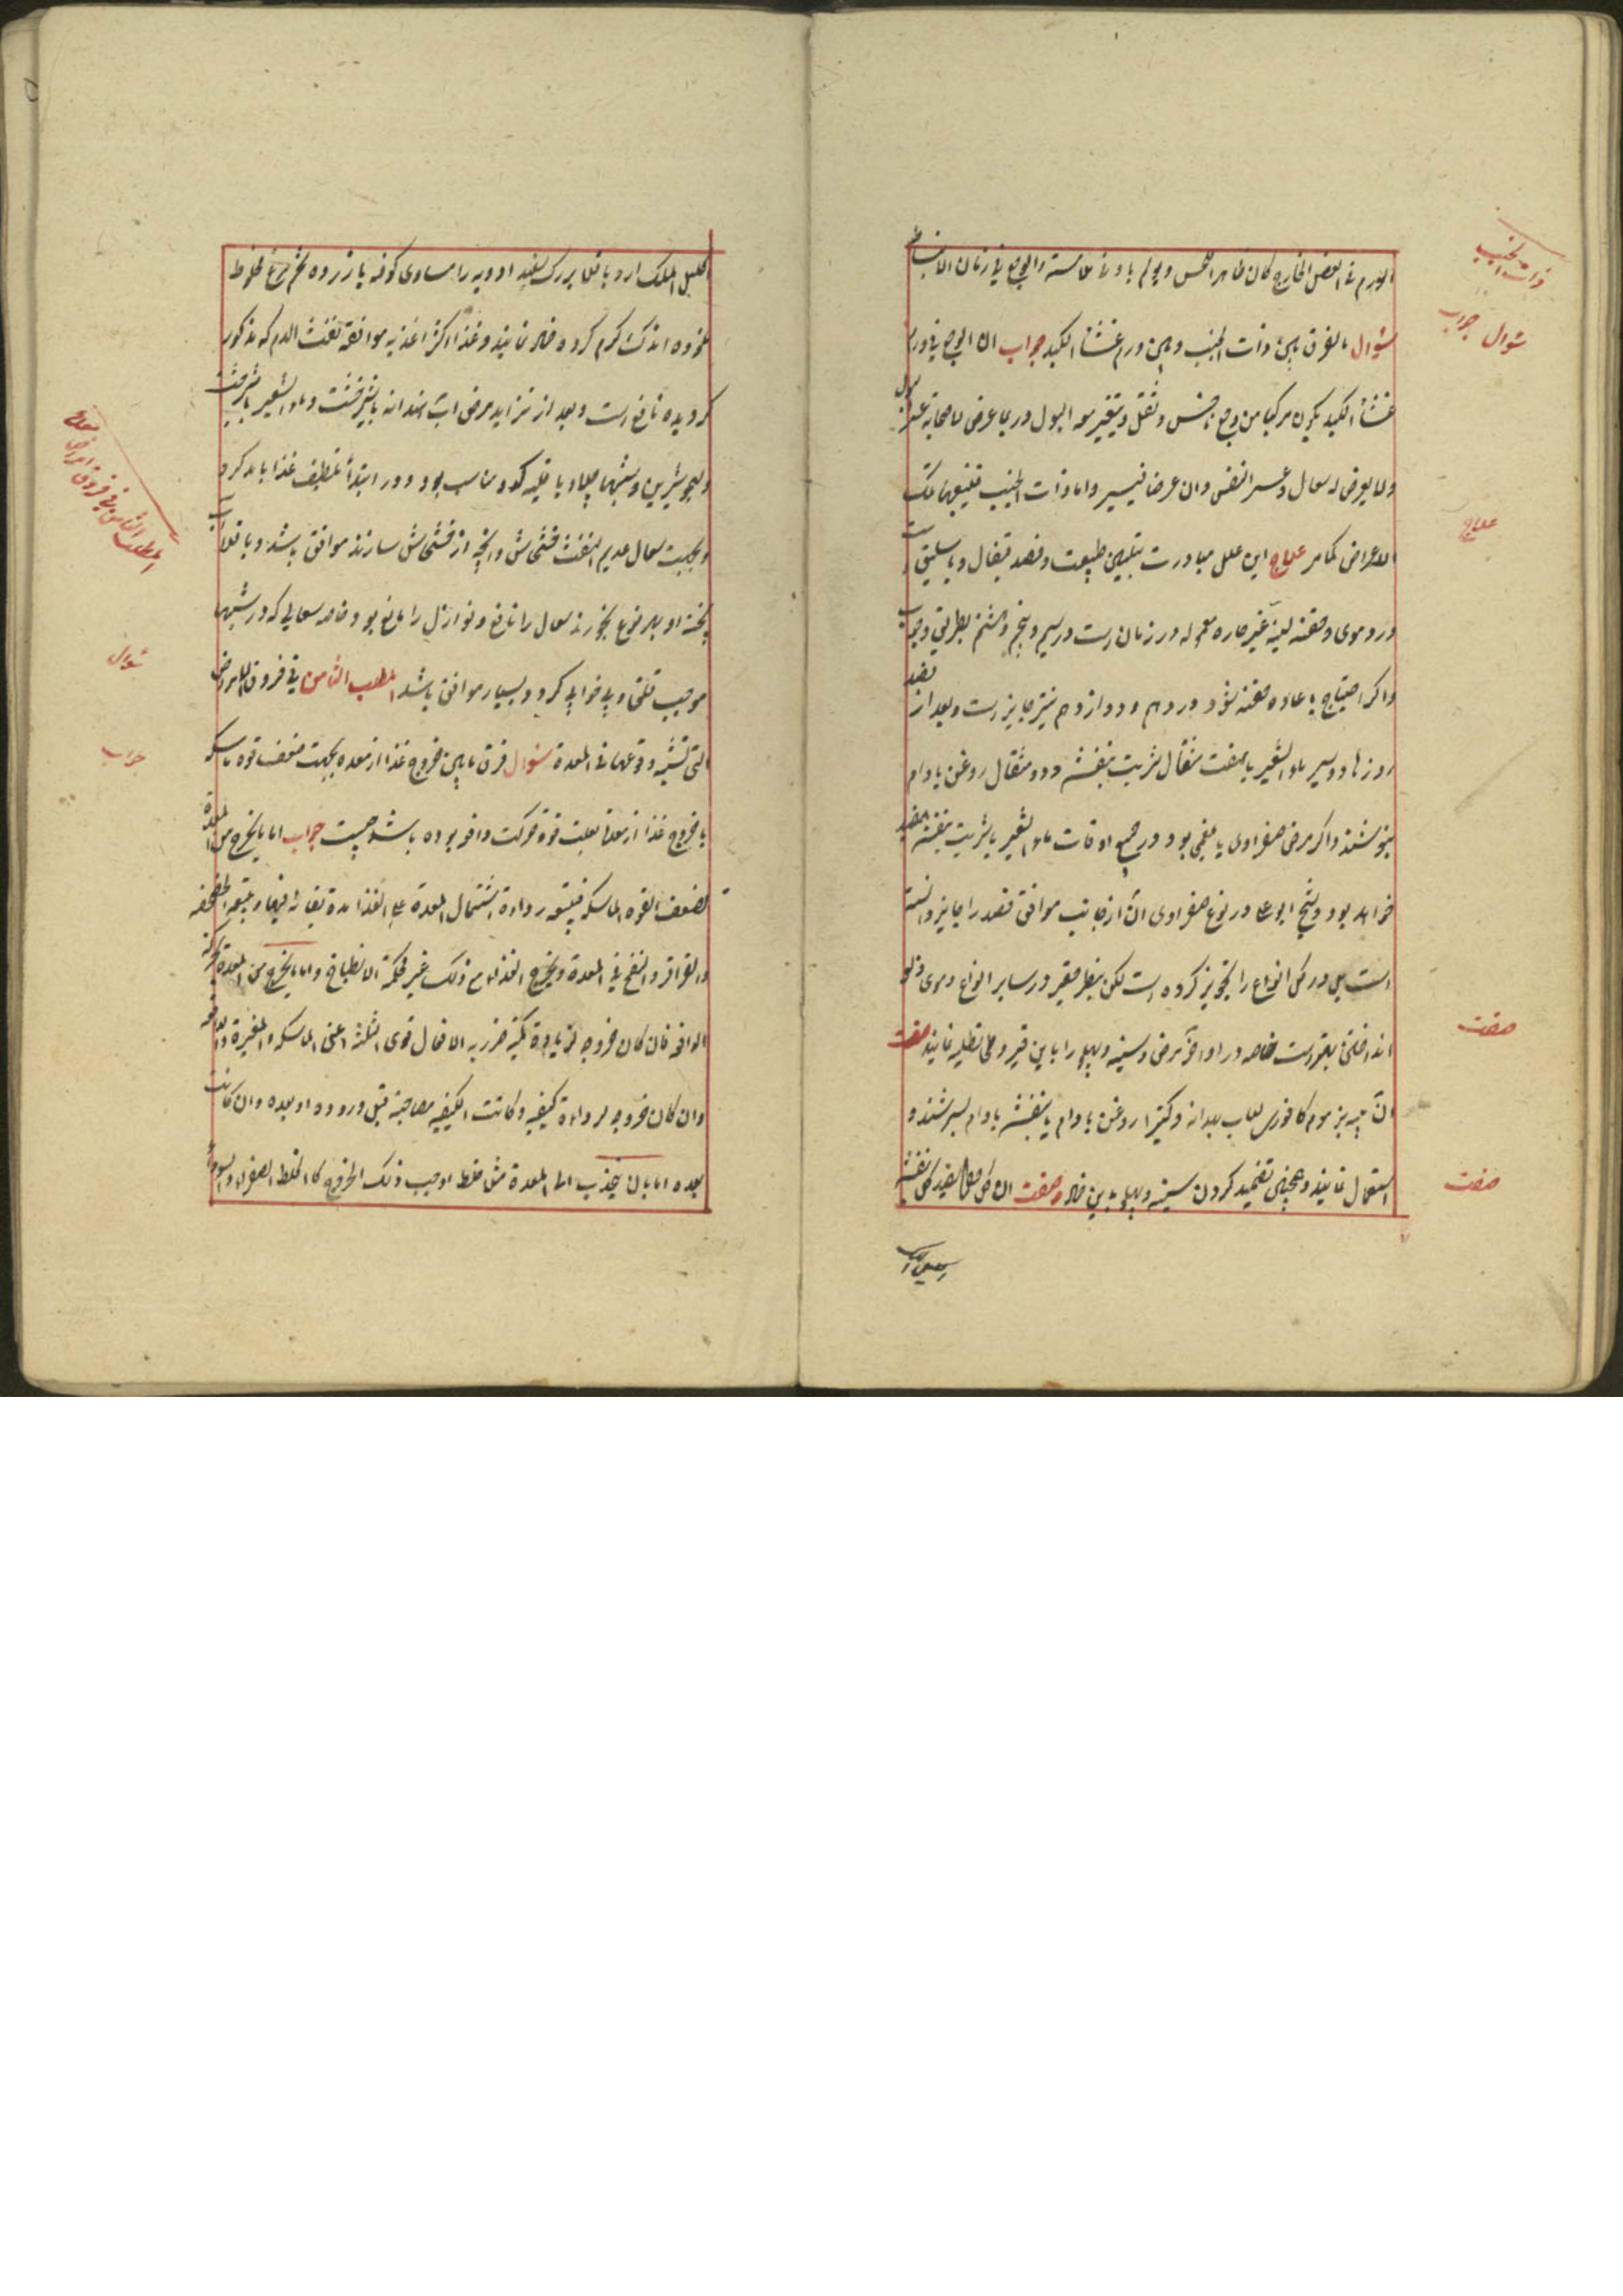 الورم فی العضل الخارج کان ظاهر الحس ویولم بادنی مماسة والوجع فی زمان الانبساط
سٔوال ما الفرق بین ذات الجنب وبین ورم غشأ الکبد جواب ان الوجع فی ورم
غشأ الکبد یکون مرکبا من وجع ناخس وثقل ویتغیر معه البول وربما عرض لاصحابه عسر البول
ولا یعرض له سعال وعسر النفس وان عرضا فیسیر واما ذات الجنب فیتبعها تلک
الاعراض کما مر علاج این علل مبادرت بتلیین طبیعت وفصد قیفال و باسلیق است
در دموی وحقنه لینه غیر حاره معموله در زمان است در سیم و پنجم و هشتم بطریق وجوب
واکر احتیاج باعاده حقنه شود در دهم و دوازدهم نیز جایز است و بعد از فصد
روزها دو سیر ماء الشعیر با هفت مثقال شربت بنفشه و دو مثقال روغن بادام
بنوشند واکر مرض صفراوی یا بلغمی بود در جمیع اوقات ماء الشعیر با شربت بنفشه مفید
خواهد بود و شیخ ابوعلی در نوع صفراوی آن از جانب موافق فصد را جایز دانسته
است بل در کل انواع را تجویز کرده است لکن بنظر حقیر در سایر انواع دموی
صفت
آن پیه بز موم کافوری لعاب بهدانه و کتیرا روغن بادام یا بنفشه بادام بسرشند و
استعمال نمایند و همچنین تضمید کردن سینه و پهلو باین ضماد صفت ان کل خطمی سفید کل بنفشه
ذات الجنب
سٔوال جواب
علاج
صفت
صفت
اکلیل الملک ارد باقلا بزرک سفید ادویه را مساوی کوفته با زرده تخم مرغ مخلوط
نموده اندک کرم کرده ضماد نمایند و غذا اکثر اغذیه موافقة نفث الدم که مذکور
کردیده نافع است و بعد از تزاید مرض آب هندانه با شیرخشت و ماء الشعیر با شیرخشت
و شبها چلاو با قلیه کدو مناسب بود و در ابتدأ تلطیف غذا باید کرد
و بجهت سعال عدیم النفث خشخاش و آنچه از خشخاش سازند موافق باشد و باقلا آب
پخته او بهر نوع بخورند سعال را نافع و نوازل را مانع بود خاصه سعالی که در شبها
موجب قلق و بی خوابی کردد بسیار موافق باشد المطلب الثامن فی فروق الامراض
التی تشتبه وقوعها فی المعدة سٔوال فرق مابین خروج غذا از معده بجهت ضعف قوه ماسکه
یا خروج غذا از معدة بعلت قوة حرکت دافعه بوده باشد چیست جواب اما ما یخرج من المعدة
لضعف القوه الماسکه فیتبعه رداءة اشتمال المعدة علی الغذا مدة بقائه فیها ویتبعه الخضخضه
والقراقر والنفخ فی المعدة ویخرج الغذاء مع ذلک غیر محکمة الانطباخ واما ما یخرج من المعدة لحرکة
الدافعه فان کان خروجه لزیادة کمیة ضرر به الافعال قوی الثلثة اعنی الماسکه والمغیرة والدافعه
وان کان خروجه لرداءة کیفیه وکانت الکیفیه مصاحبة قبل وروده او بعده وان کانت
بعده اما بان یجذب الی المعدة مثل خلط اوجب ذلک الخروج کالخلط الصفراء والسوداء
المطلب الثامن فی فروق امراض معده
سٔوال
جواب